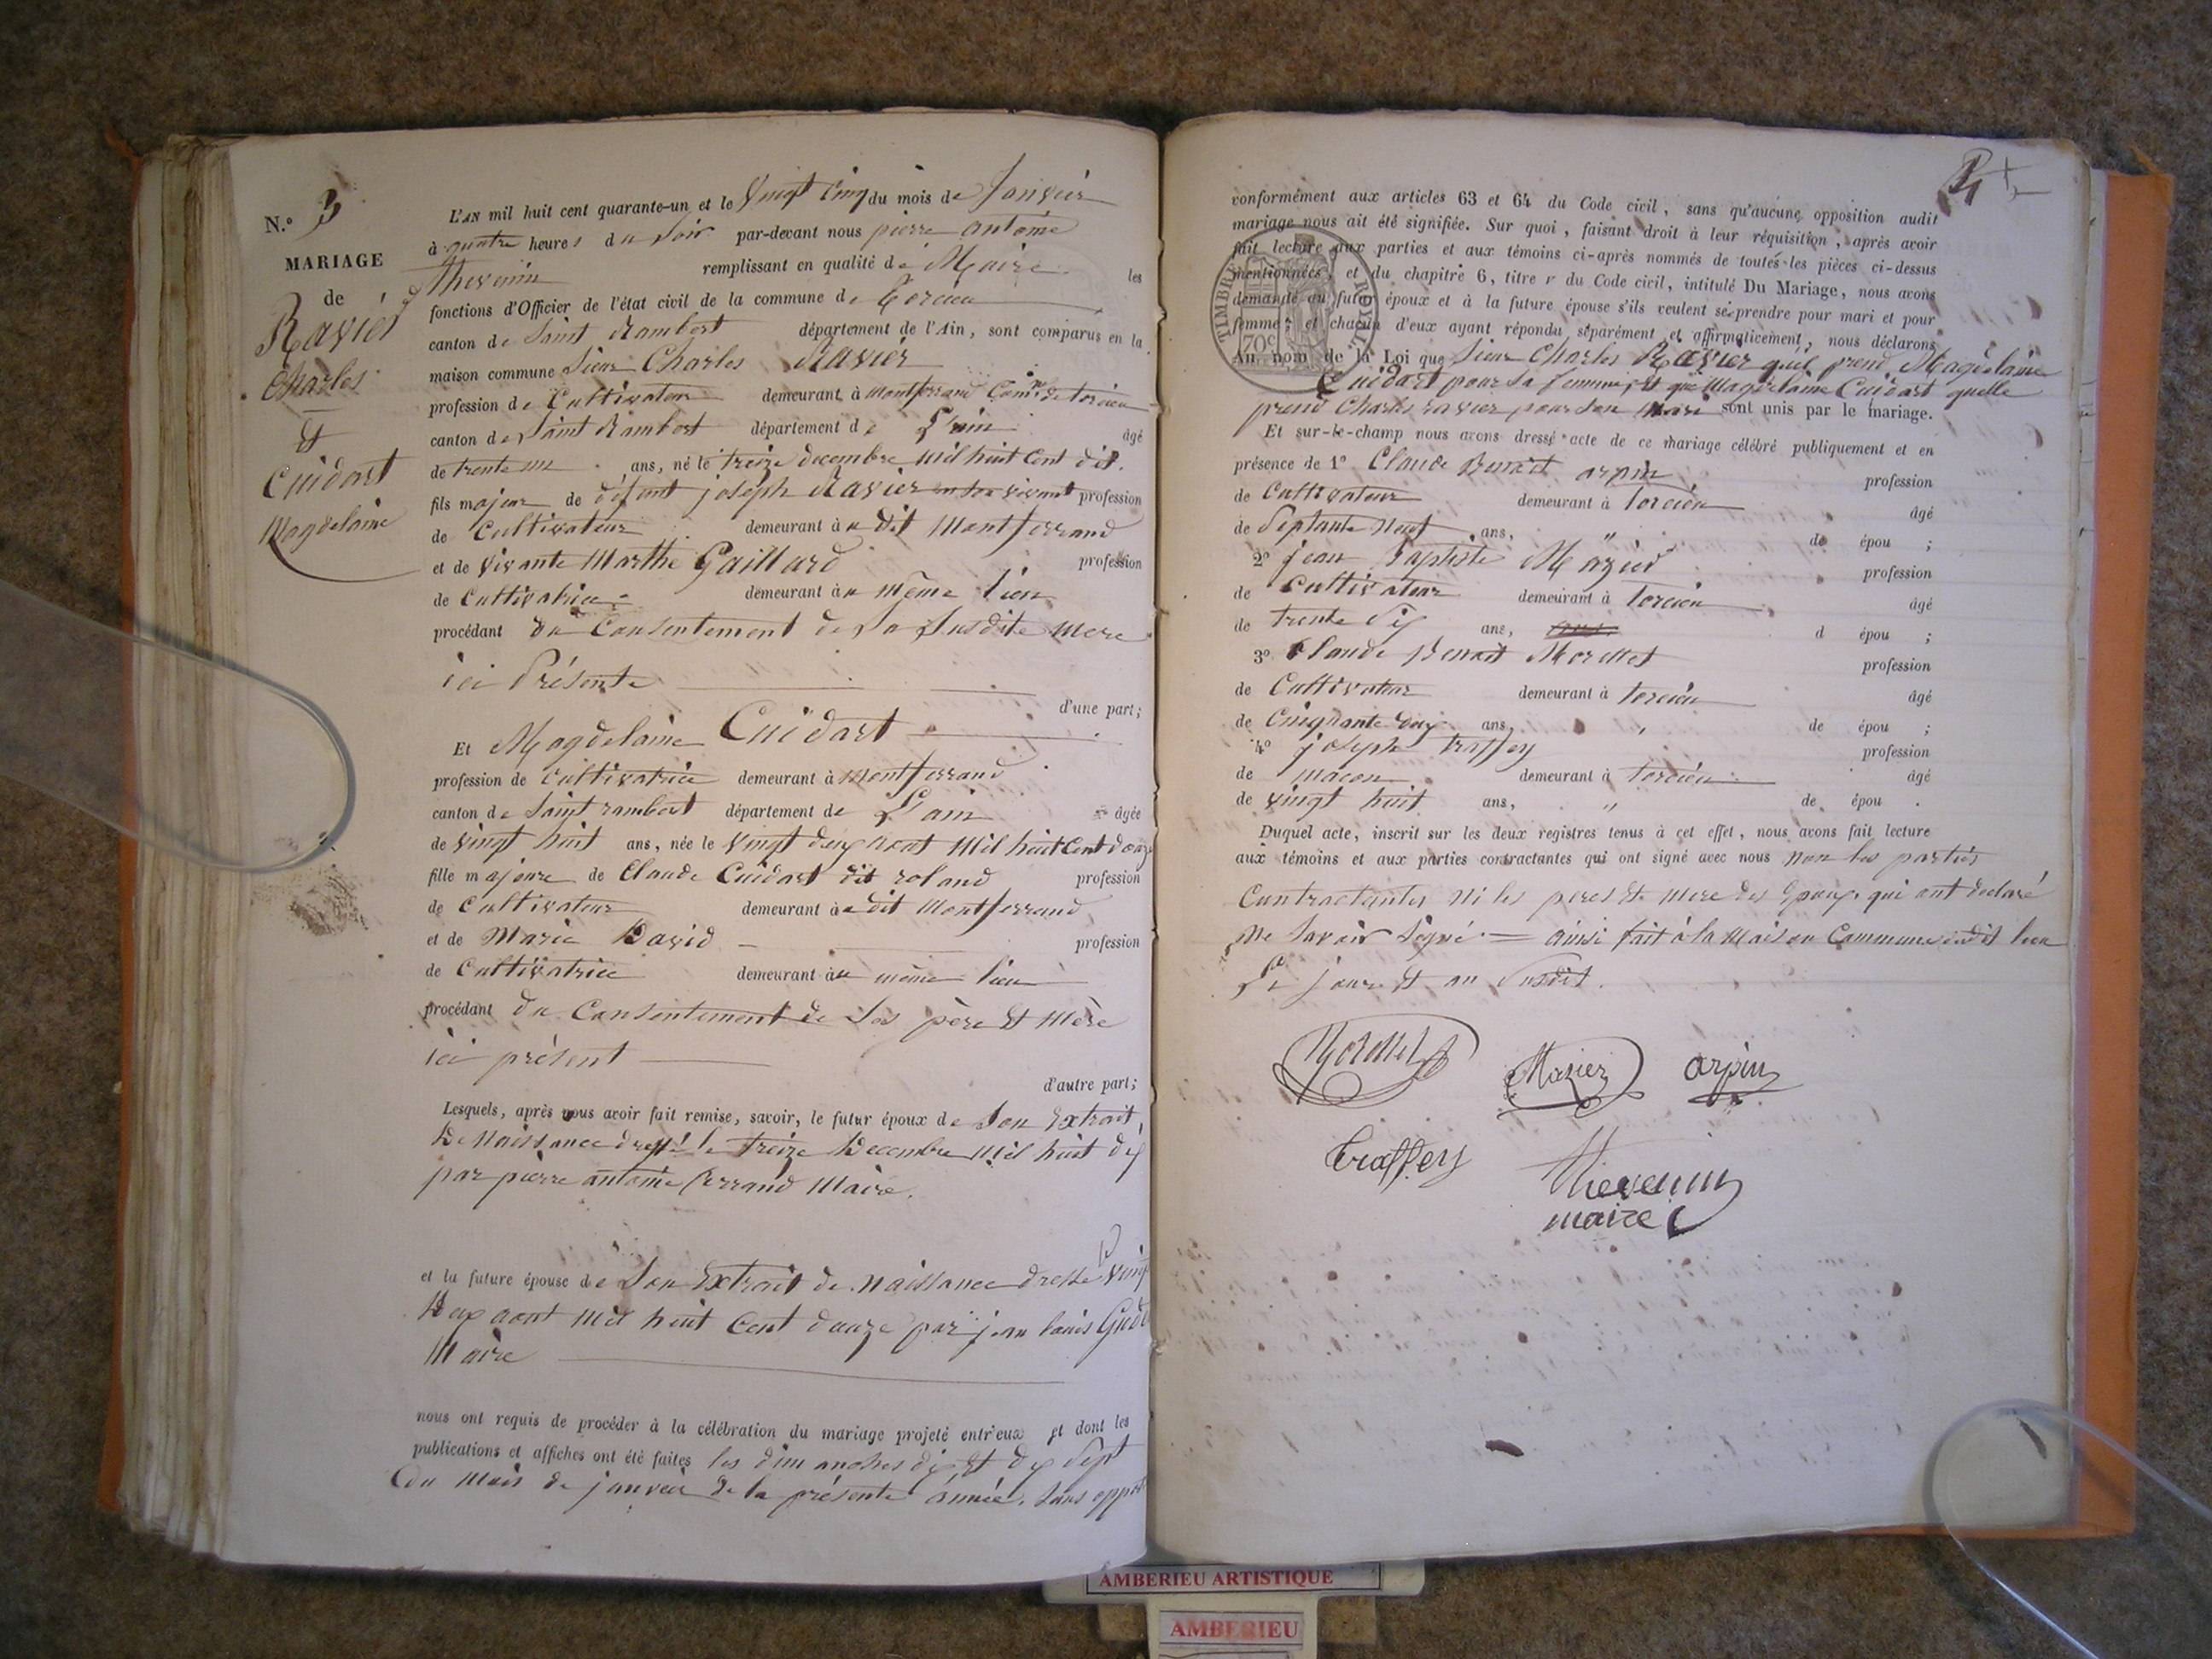 N.º 3
MARIAGE
de
Ravier
Charles
Et
Cuidart
Magdelaine
L'AN mil huit cent quarante-un et le Vingt Cinq du mois de Janvier
à quatre heures du Soir par-devant nous pierre antoine
thevenin remplissant en qualité de Maire les
fonctions d'Officier de l'état civil de la commune de torcieu
canton de Saint Rambert département de l'Ain, sont comparus en la
maison commune Sieur Charles Ravier
profession de Cultivateur demeurant à montferrand Comne de torcieu
canton de Saint Rambert département de L'ain âgé
de trente un ans, né le treize decembre mil huit Cent dix.
fils majeur de défunt joseph Ravier en son vivant profession
de Cultivateur demeurant à u dit Montferrand
et de vivante Marthe Gaillard profession
de Cultivatrice demeurant à u même lieu
procédant du Consentement de Sa Susdite mere
ici Présente
d'une part;
Et Magdelaine Cuidart
profession de Cultivatrice demeurant à montferrand
canton de Saint rambert département de L'ain âgée
de vingt huit ans, née le Vingt deux aout mil huit Cent douze
fille majeure de Claude Cuidart dit roland profession
de Cultivateur demeurant à u dit Montferrand
et de Marie David profession
de Cultivatrice demeurant à u même lieu
procédant du Consentement de Ses père Et Mère
ici présent
d'autre part;
Lesquels, après nous avoir fait remise, savoir, le futur époux de Son Extrait
De Naissance dressé le treize Decembre mil huit dix
par pierre antoine ferrand Maire.
et la future épouse de Son Extrait de Naissance dressé le Vingt
Deux aout mil huit Cent douze par jean louis
Maire
nous ont requis de procéder à la célébration du mariage projeté entr'eux et dont les
publications et affiches ont été faites les dimanches dix Et dix Sept
du mois de janvier de la présente année, Sans
conformément aux articles 63 et 64 du Code civil, sans qu'aucune opposition audit
mariage nous ait été signifiée. Sur quoi, faisant droit à leur réquisition, après avoir
fait lecture aux parties et aux témoins ci-après nommés de toutes les pièces ci-dessus
mentionnées, et du chapitre 6, titre v du Code civil, intitulé Du Mariage, nous avons
demandé au futur époux et à la future épouse s'ils veulent se prendre pour mari et pour
femme; et chacun d'eux ayant répondu séparément et affirmativement, nous déclarons
TIMBRE ROYAL
70c
Au nom de la Loi que Sieur Charles Ravier quil prend Magdelaine
Cuidart pour Sa femme, Et que Magdelaine Cuidart quelle
prend Charles ravier pour Son Mari sont unis par le mariage.
Et sur-le-champ nous avons dressé acte de ce mariage célébré publiquement et en
présence de 1º Claude Benoit arpin profession
de Cultivateur demeurant à torcieu âgé
de Septante Neuf ans, de épou ;
2º jean Baptiste Mazier profession
de Cultivateur demeurant à torcieu âgé
de trente Six ans, d épou ;
3º Claude Benoit Morellet profession
de Cultivateur demeurant à torcieu âgé
de Cinquante deux ans, " de épou ;
4º joseph traffey profession
de maçon demeurant à torcieu âgé
de vingt huit ans, " de épou .
Duquel acte, inscrit sur les deux registres tenus à cet effet, nous avons fait lecture
aux témoins et aux parties contractantes qui ont signé avec nous non les parties
Contractantes Ni les peres Et mere des Epoux qui ont declaré
Ne Savoir Signé = ainsi fait à la Maison Commune audit lieu
Le jour Et an Susdit.
Morellet
Mazier
arpin
traffey
Thevenin
maire
AMBERIEU ARTISTIQUE
AMBERIEU